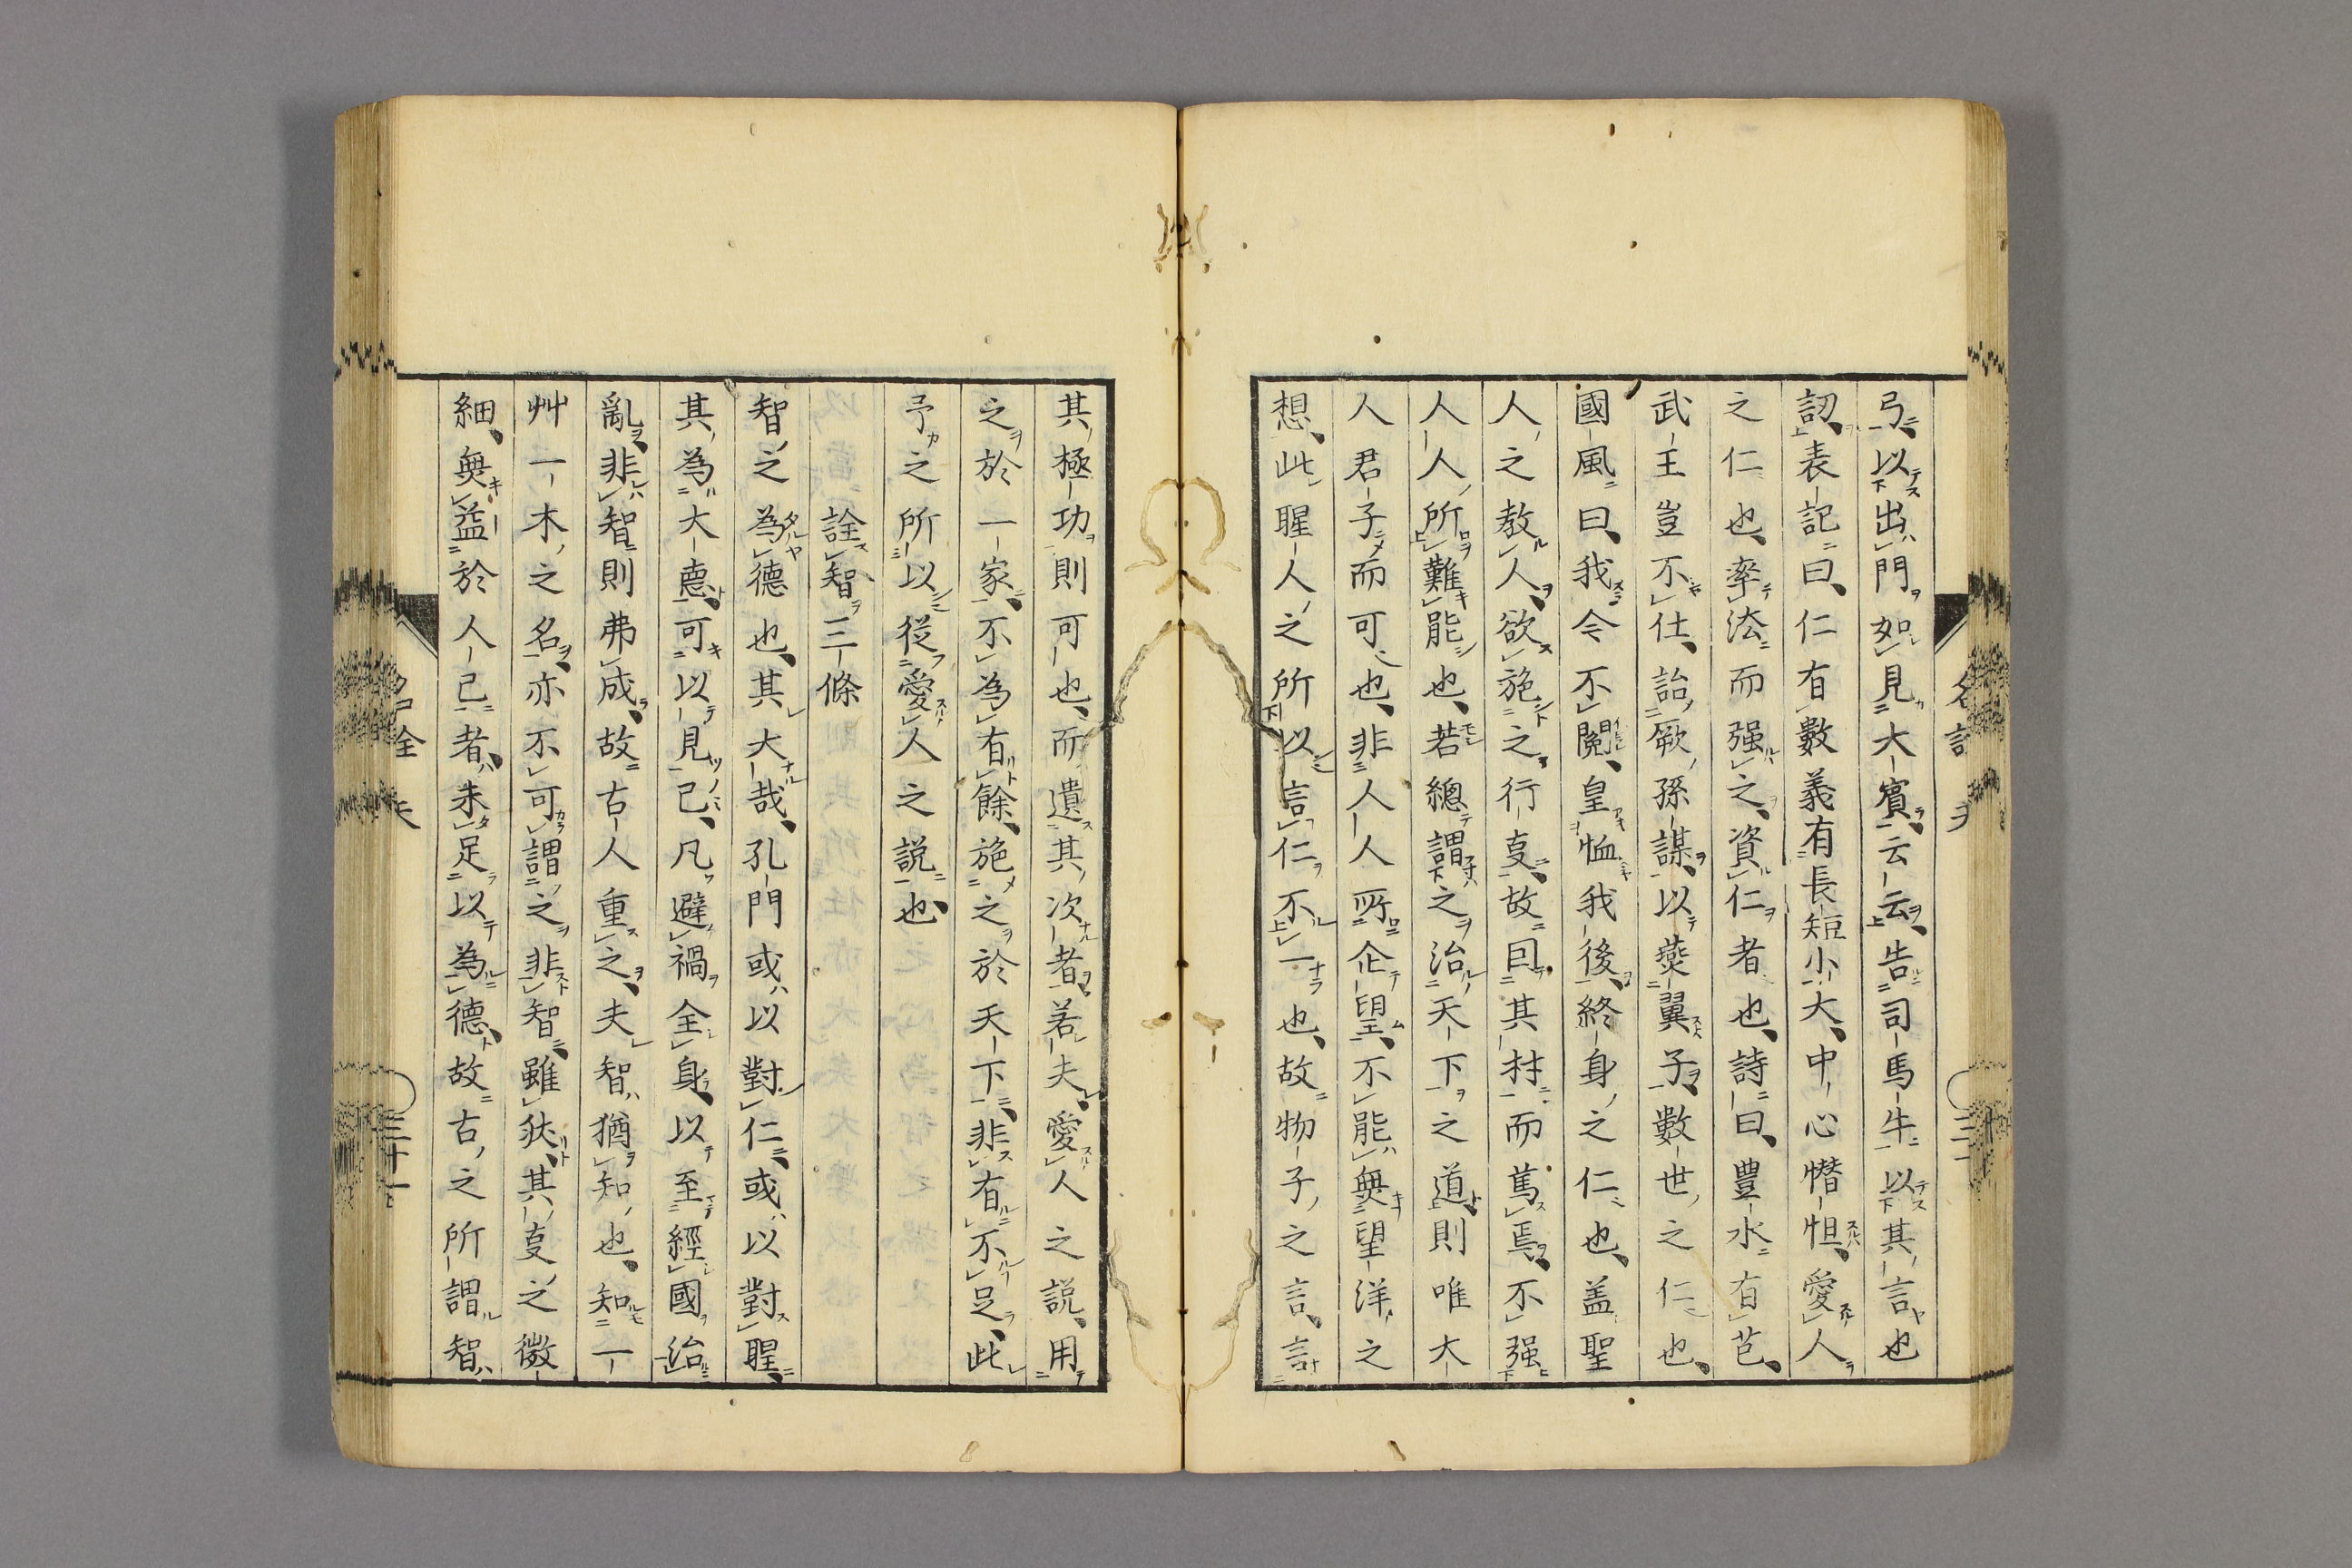 弓以出門如見大賓云云告司馬牛以其言也
訒表記曰仁有數義有長短小大中心憯怛愛人
之仁也率法而强之資仁者也詩曰豐水有芑
武王豈不仕詒厥孫謀以燕翼子數世之仁也
國風曰我今不閱皇恤我後終身之仁也盖聖
人之教人欲施之行事故因其材而篤焉不强
人人所難能也若總謂之治天下之道則唯大
人君子而可也非人人所企望不能無望洋之
想此聖人之所以言仁不一也故物子之言言
其極功則可也而遺其次者若夫愛人之說用
之於一家不為有餘施之於天下非有不足此
予之所以從愛人之說也
詮智三條
智之為德也其大哉孔門或以對仁或以對聖
其為大德可以見已凡避禍全身以至經國治
亂非智則弗成故古人重之夫智猶知也知一
艸一木之名亦不可謂之非智雖然其事之微
細無益於人己者未足以為德故古之所謂智
三十一